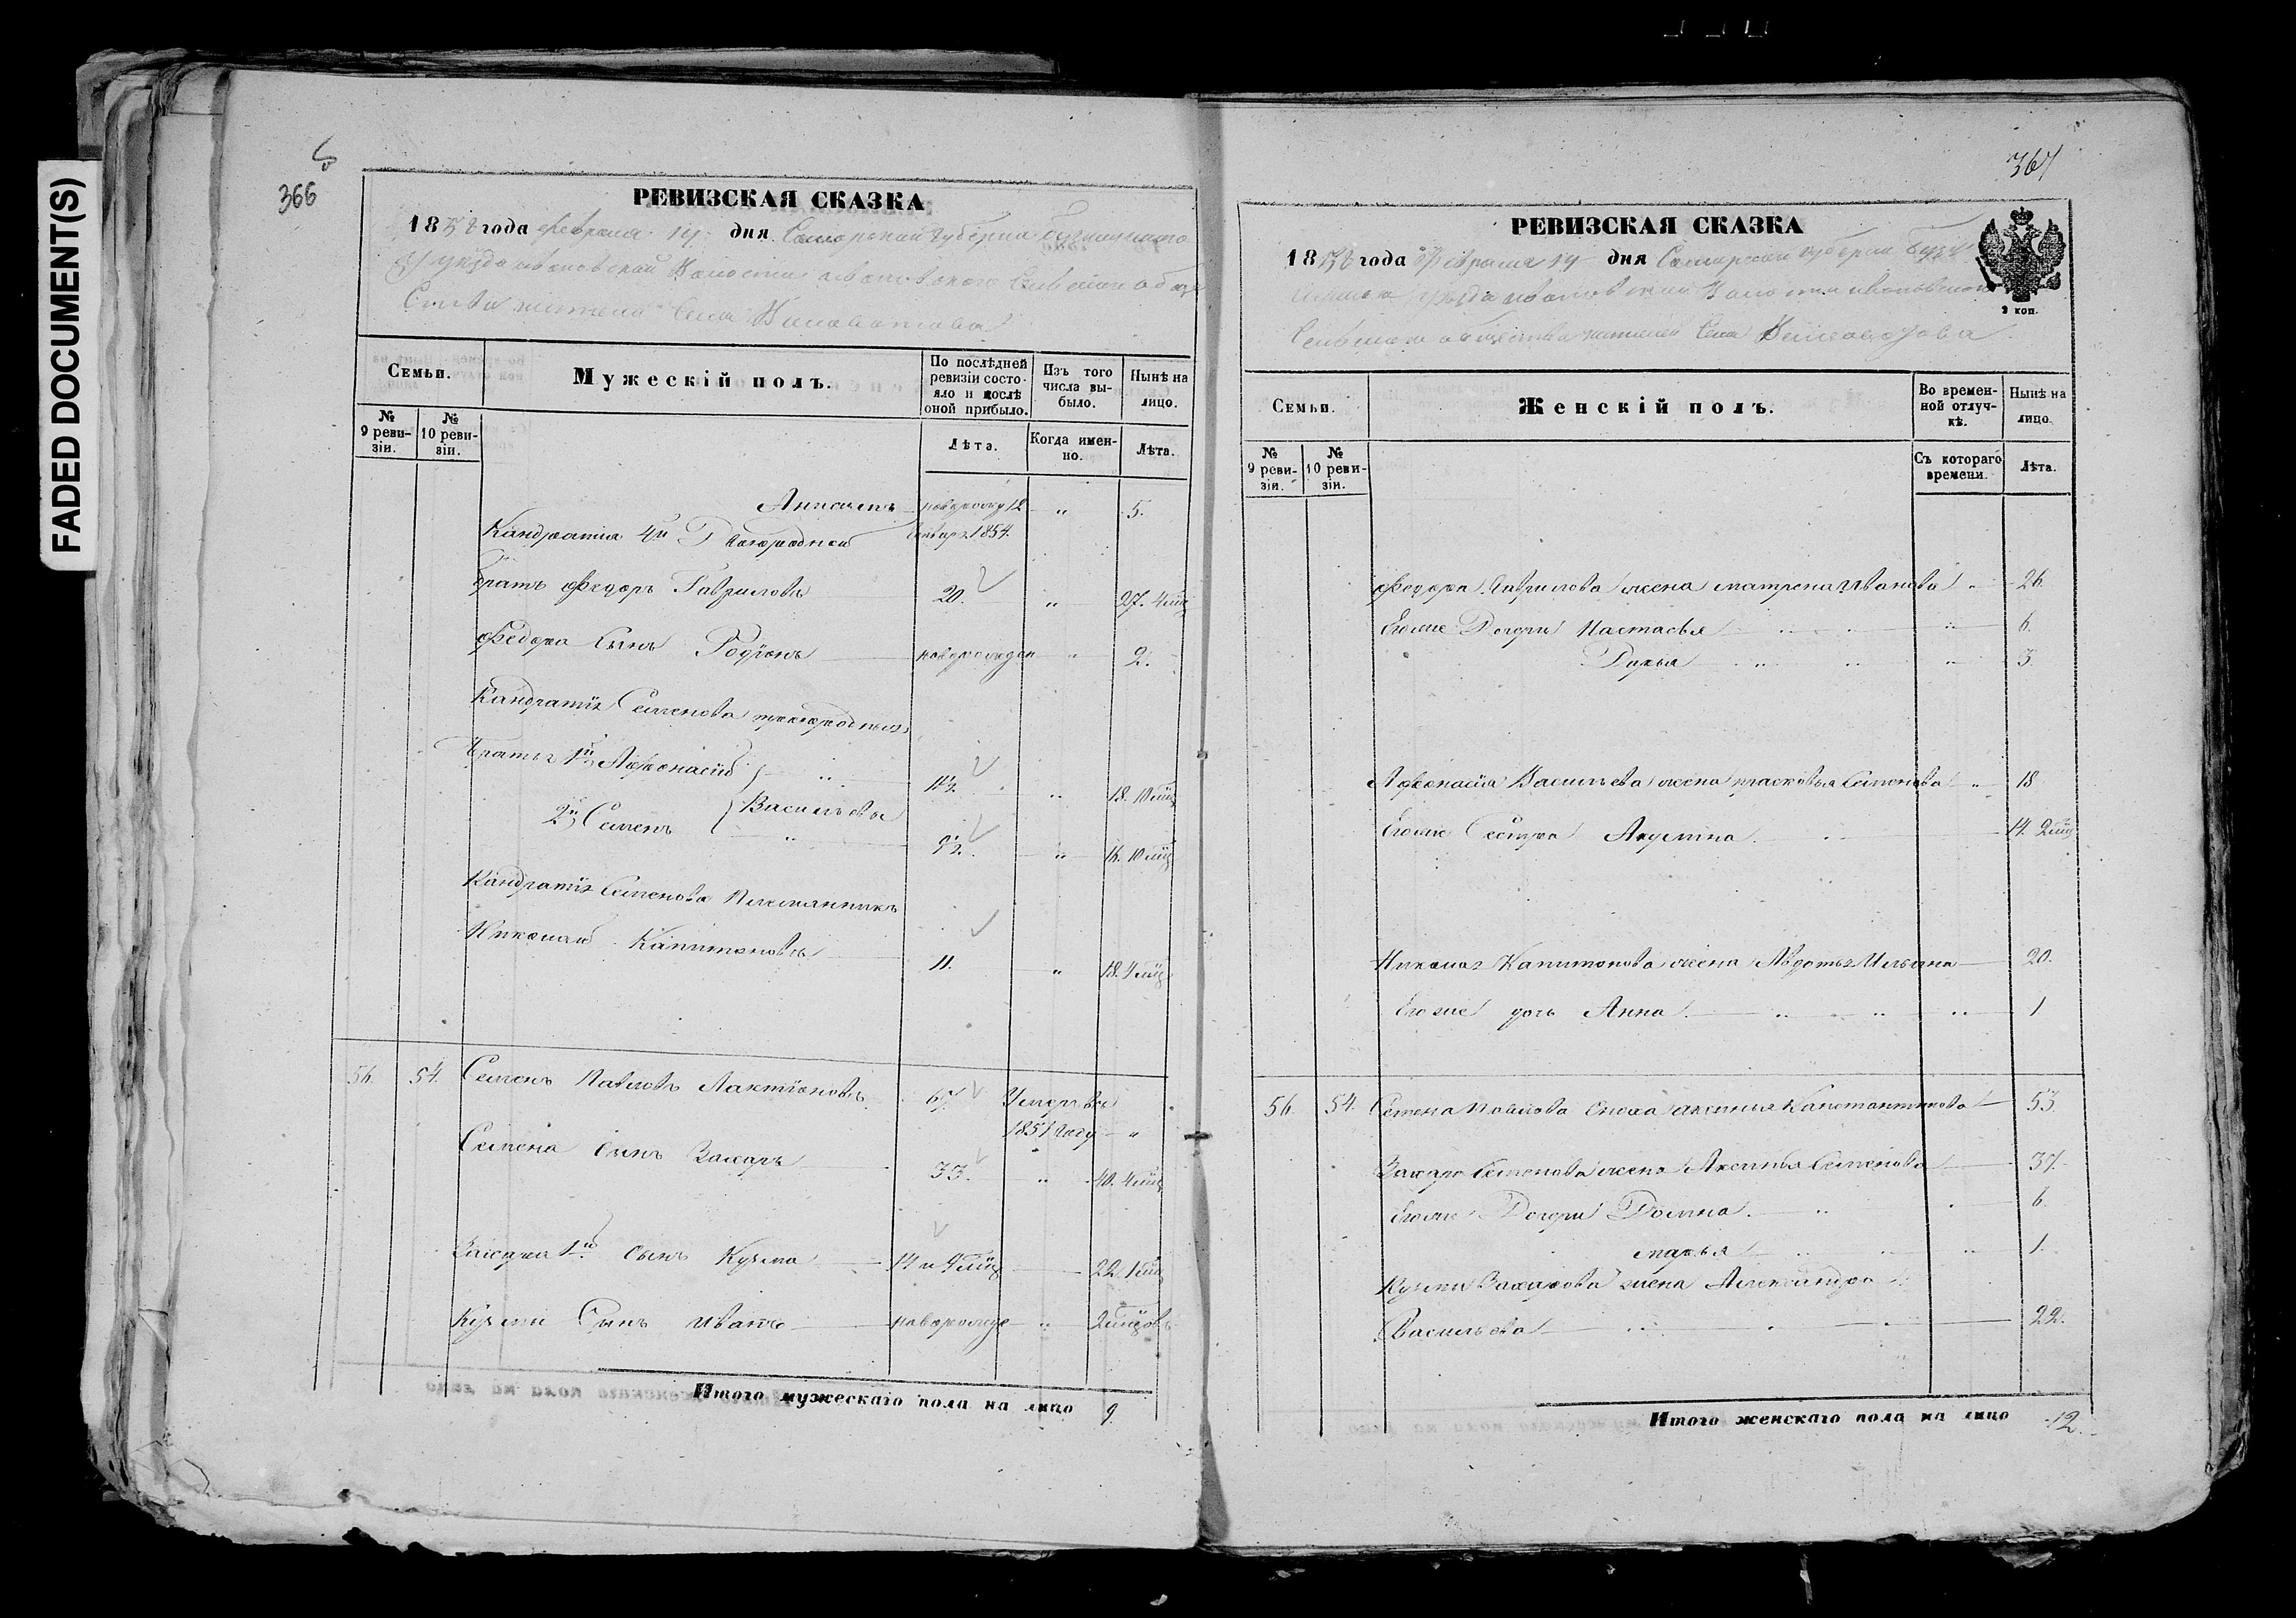 FADED DOCUMENT(S)
366
РЕВИЗСКАЯ СКАЗКА
1858 года Февраля 14 дня Самарской Губернiи
уезда Ивановской Волости Ивановского
Села
Семьи.
Мужескій полъ.
По послѣдней ревизіи состояло и послѣ оной прибыло.
Изъ того числа выбыло.
Нынѣ на лицо.
№ 9 ревизіи.
№ 10 ревизіи.
Лѣта.
Когда именно.
Лѣта.
12 " 5.
Кандратія 4й 1854.
братъ Федоръ Гавриловъ 20. " 27. 4
Федора Сынъ Родіонъ " 2.
Кандратія Семенова
Братья 1й Афонасій " 18. 10
2й Семенъ } Васильевы " 16. 10
Кандратія Семенова Племянникъ
Николай Капитоновъ 11. " 18. 4
56. 54. Семенъ Павловъ Лактіоновъ 67. Умеръ въ
1851 году "
Семена Сынъ Захаръ 33. " 40. 4
Захара 1й Сынъ Кузма 14 и 4 22. 1
Кузмы Сынъ Иванъ " 2
Итого мужескаго пола на лицо 9.
367
РЕВИЗСКАЯ СКАЗКА
1858 года Февраля 14 дня Самарской губерніи
уезда Ивановской Волости
Сельскаго общества жителей Села
2 коп.
Семьи.
Женскій полъ.
Во временной отлучкѣ.
Нынѣ на лицо.
№ 9 ревизіи.
№ 10 ревизіи.
Съ котораго времени.
Лѣта.
Федора Гаврилова жена Матрена Иванова " 26.
Егоже Дочери Настасья " 6.
Дарья " 3.
Афонасія Васильева жена Прасковья Семенова " 18
Егоже Сестра Акулина 14. 2
Николая Капитонова жена Авдотья Ильина 20.
Егоже дочь Анна 1
56. 54. Семена Павлова Сноха Аксинья Канстантинова 53.
Захара Семенова жена Аксинья Семенова 37.
Егоже Дочери Домна 6.
Марья 1.
Кузмы Захарова жена Александра
Васильева 22.
Итого женскаго пола на лицо 12.